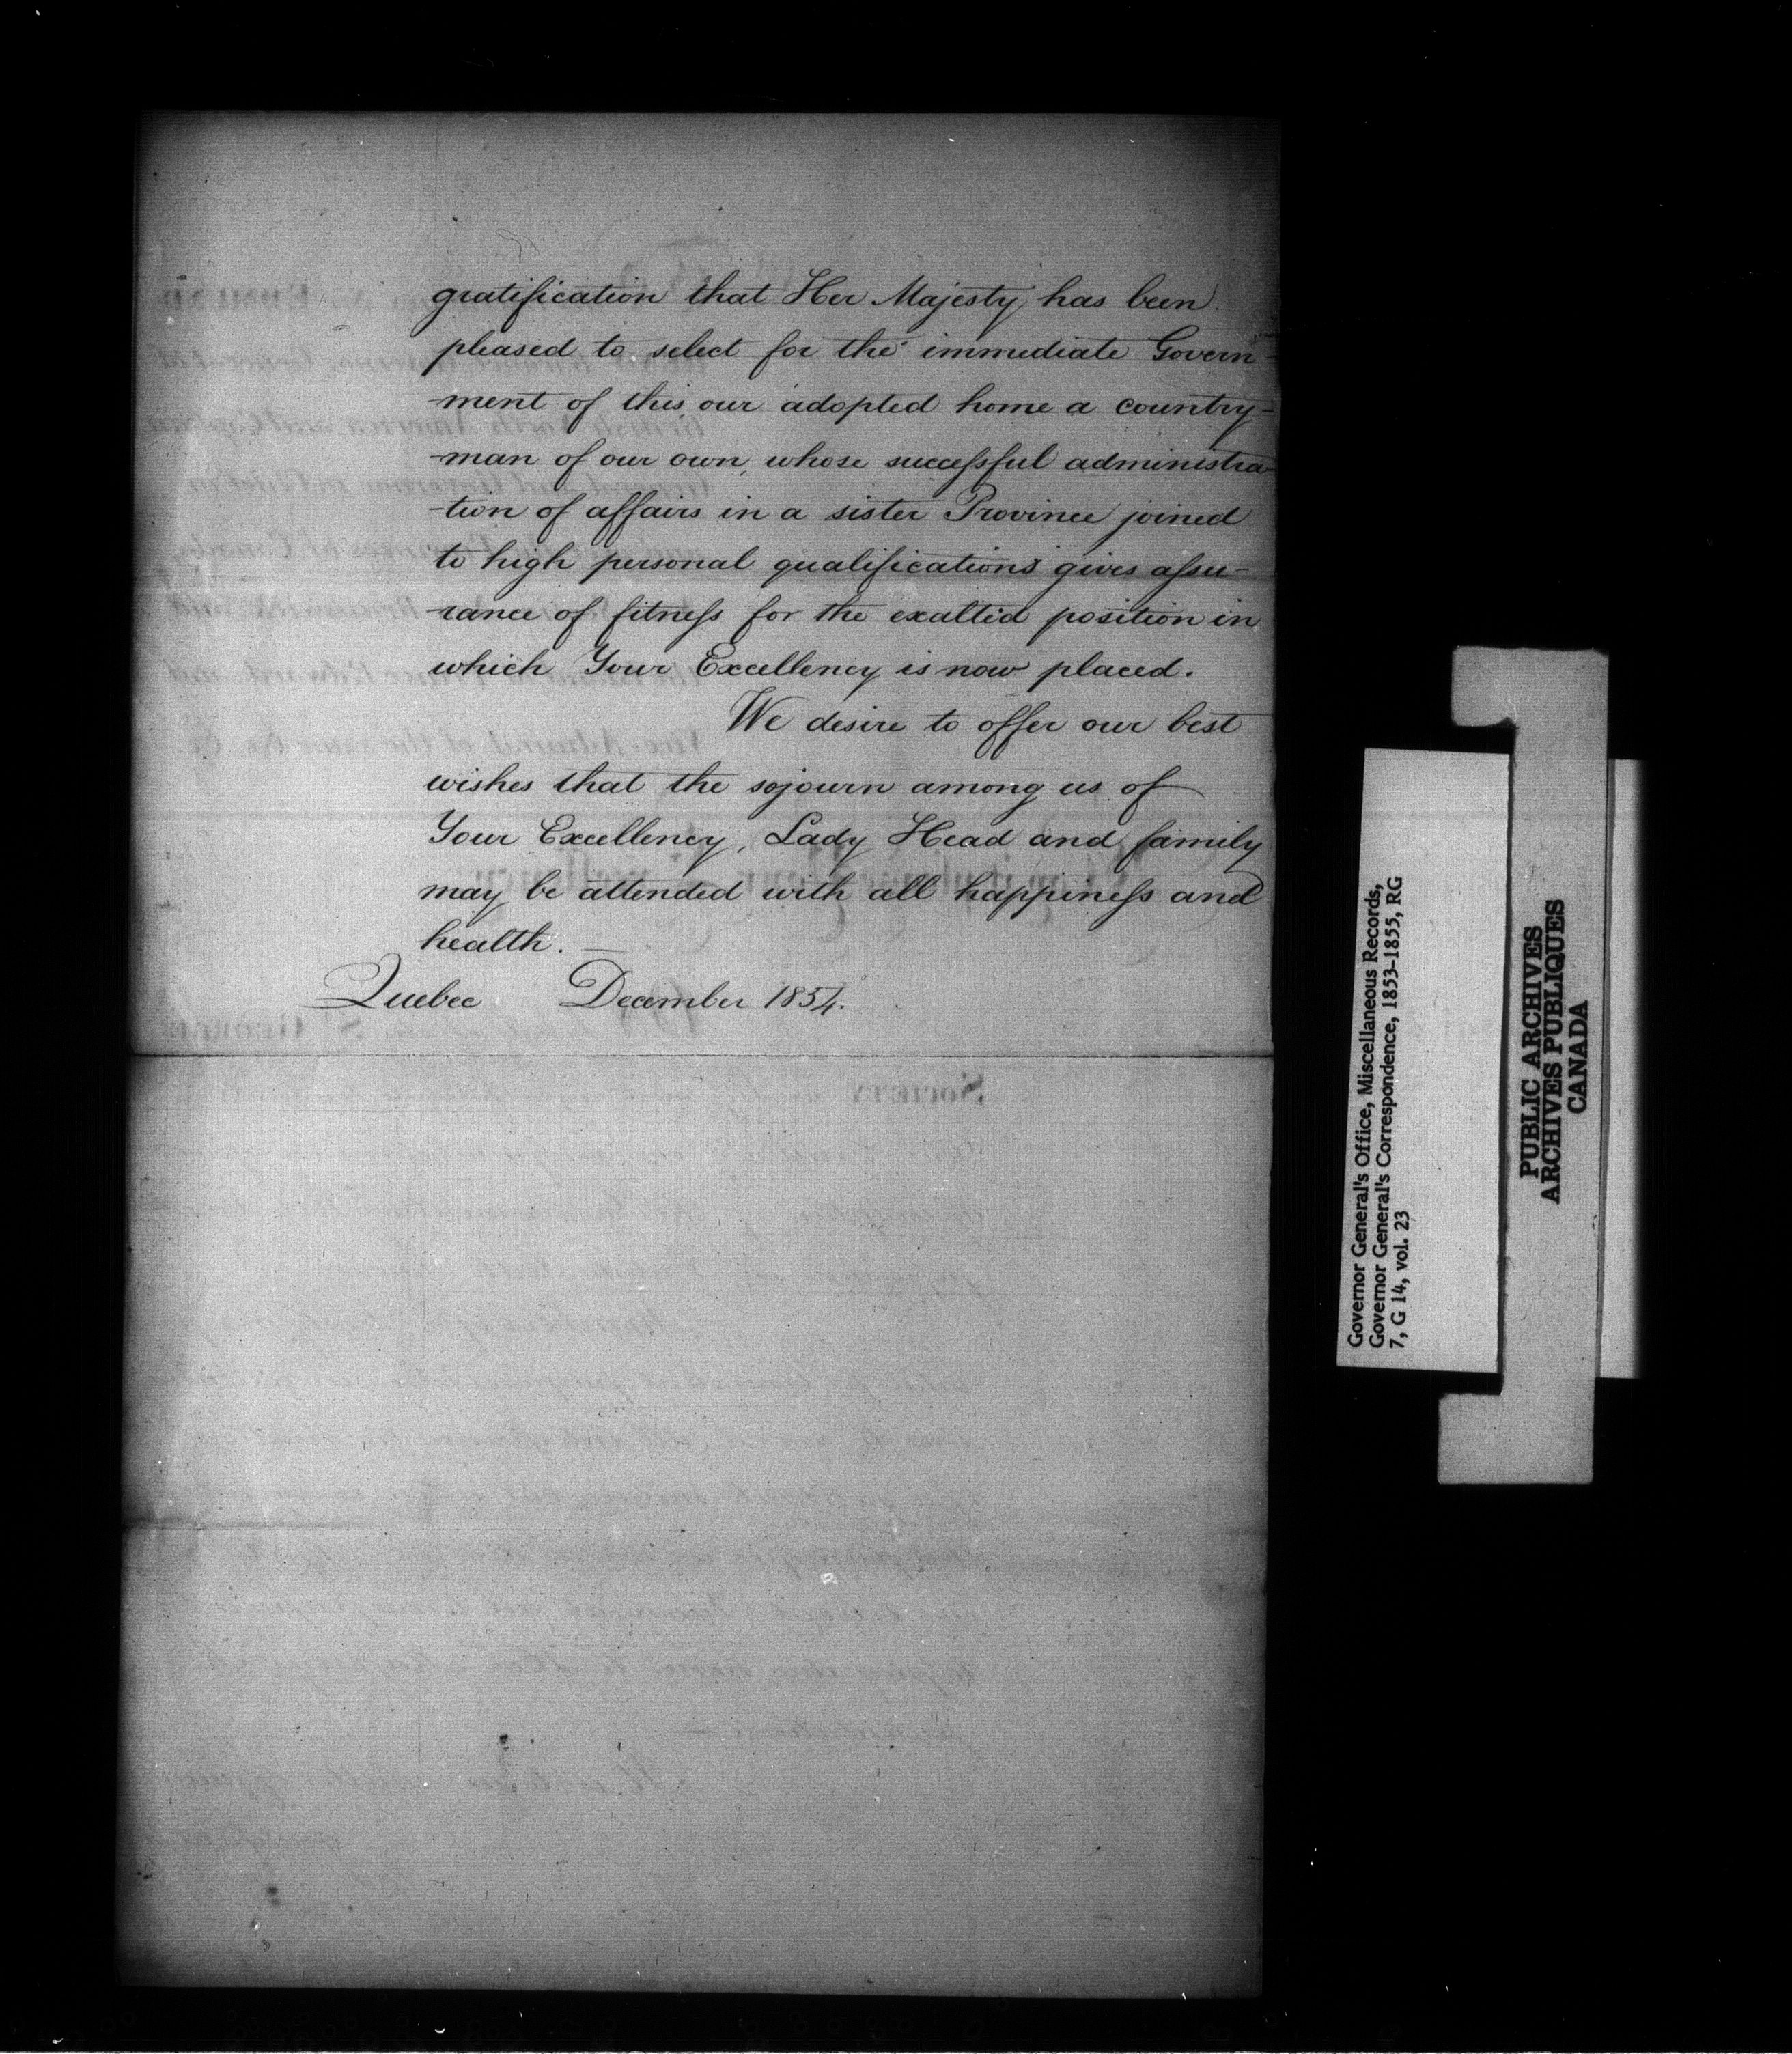 gratification that Her Majesty has been
pleased to select for the immediate Govern-
-ment of this our adopted home a country-
-man of our own, whose successful administra-
-tion of affairs in a sister Province joined
to high personal qualifications gives assu-
-rance of fitness for the exalted position in
which Your Excellency is now placed.
We desire to offer our best
wishes that the sojourn among us of
Your Excellency, Lady Head and family
may be attended with all happiness and
health. —
Quebec December 1854.
Governor General's Office, Miscellaneous Records,
Governor General's Correspondence, 1853-1855, RG
7, G 14, vol. 23
PUBLIC ARCHIVES
ARCHIVES PUBLIQUES
CANADA